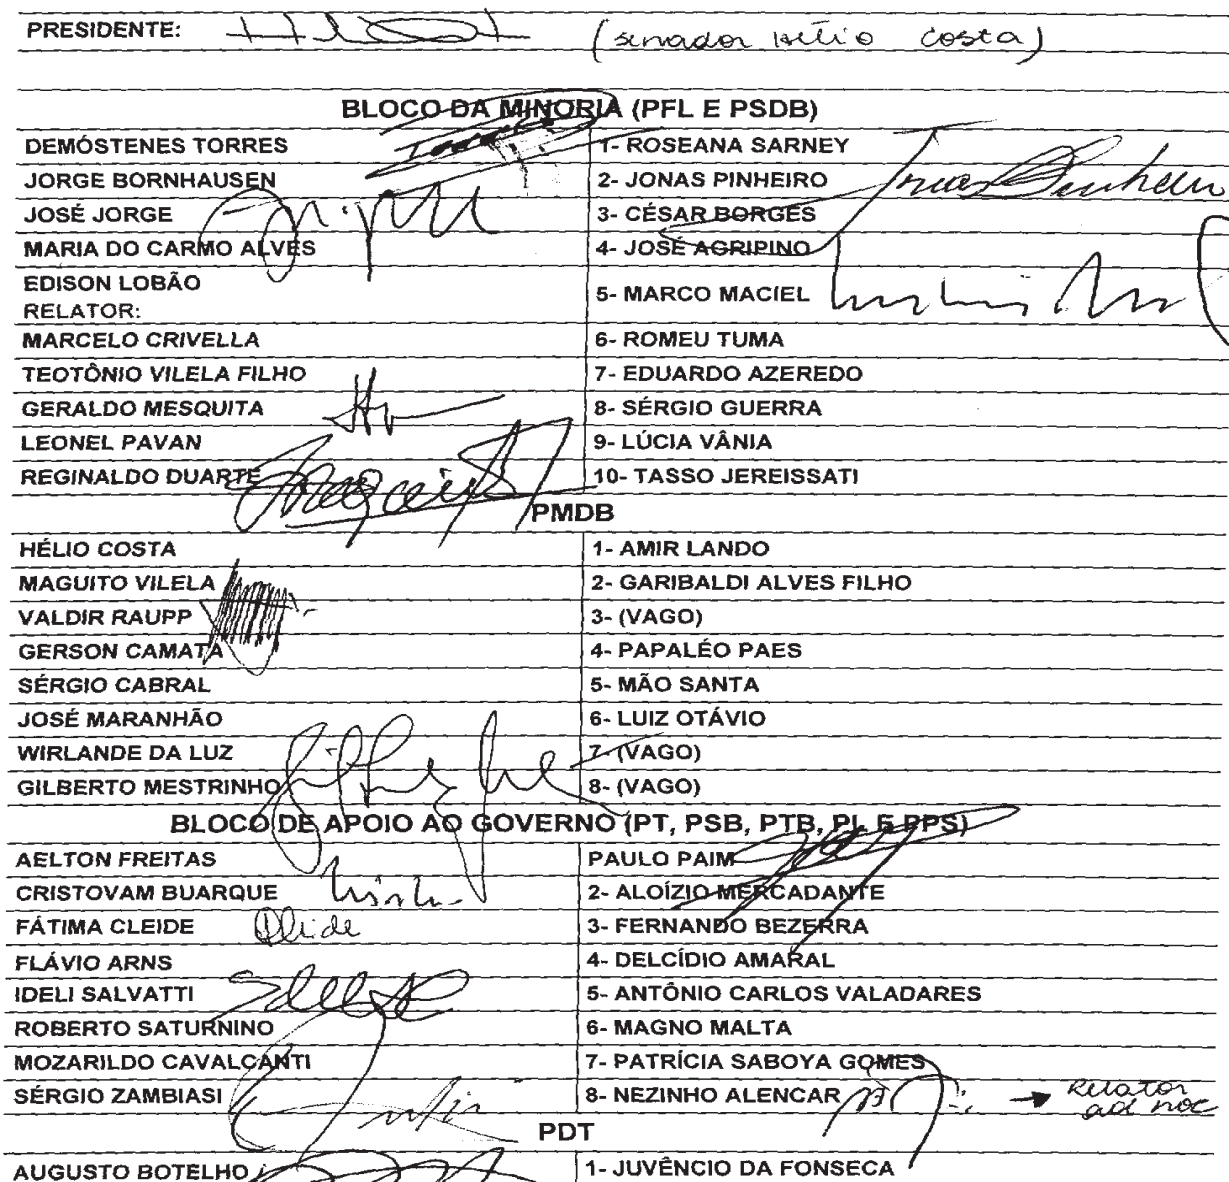 PRESIDENTE: (senador Hélio Costa)
BLOCO DA MINORIA (PFL E PSDB)
DEMÓSTENES TORRES 1- ROSEANA SARNEY
JORGE BORNHAUSEN 2- JONAS PINHEIRO Jonas Pinheiro
JOSÉ JORGE 3- CÉSAR BORGES
MARIA DO CARMO ALVES 4- JOSÉ AGRIPINO
EDISON LOBÃO
RELATOR: 5- MARCO MACIEL
MARCELO CRIVELLA 6- ROMEU TUMA
TEOTÔNIO VILELA FILHO 7- EDUARDO AZEREDO
GERALDO MESQUITA 8- SÉRGIO GUERRA
LEONEL PAVAN 9- LÚCIA VÂNIA
REGINALDO DUARTE 10- TASSO JEREISSATI
PMDB
HÉLIO COSTA 1- AMIR LANDO
MAGUITO VILELA 2- GARIBALDI ALVES FILHO
VALDIR RAUPP 3- (VAGO)
GERSON CAMATA 4- PAPALÉO PAES
SÉRGIO CABRAL 5- MÃO SANTA
JOSÉ MARANHÃO 6- LUIZ OTÁVIO
WIRLANDE DA LUZ 7- (VAGO)
GILBERTO MESTRINHO 8- (VAGO)
BLOCO DE APOIO AO GOVERNO (PT, PSB, PTB, PL E PPS)
AELTON FREITAS PAULO PAIM
CRISTOVAM BUARQUE 2- ALOÍZIO MERCADANTE
FÁTIMA CLEIDE 3- FERNANDO BEZERRA
FLÁVIO ARNS 4- DELCÍDIO AMARAL
IDELI SALVATTI 5- ANTÔNIO CARLOS VALADARES
ROBERTO SATURNINO 6- MAGNO MALTA
MOZARILDO CAVALCANTI 7- PATRÍCIA SABOYA GOMES
SÉRGIO ZAMBIASI 8- NEZINHO ALENCAR → Relator ad hoc
PDT
AUGUSTO BOTELHO 1- JUVÊNCIO DA FONSECA